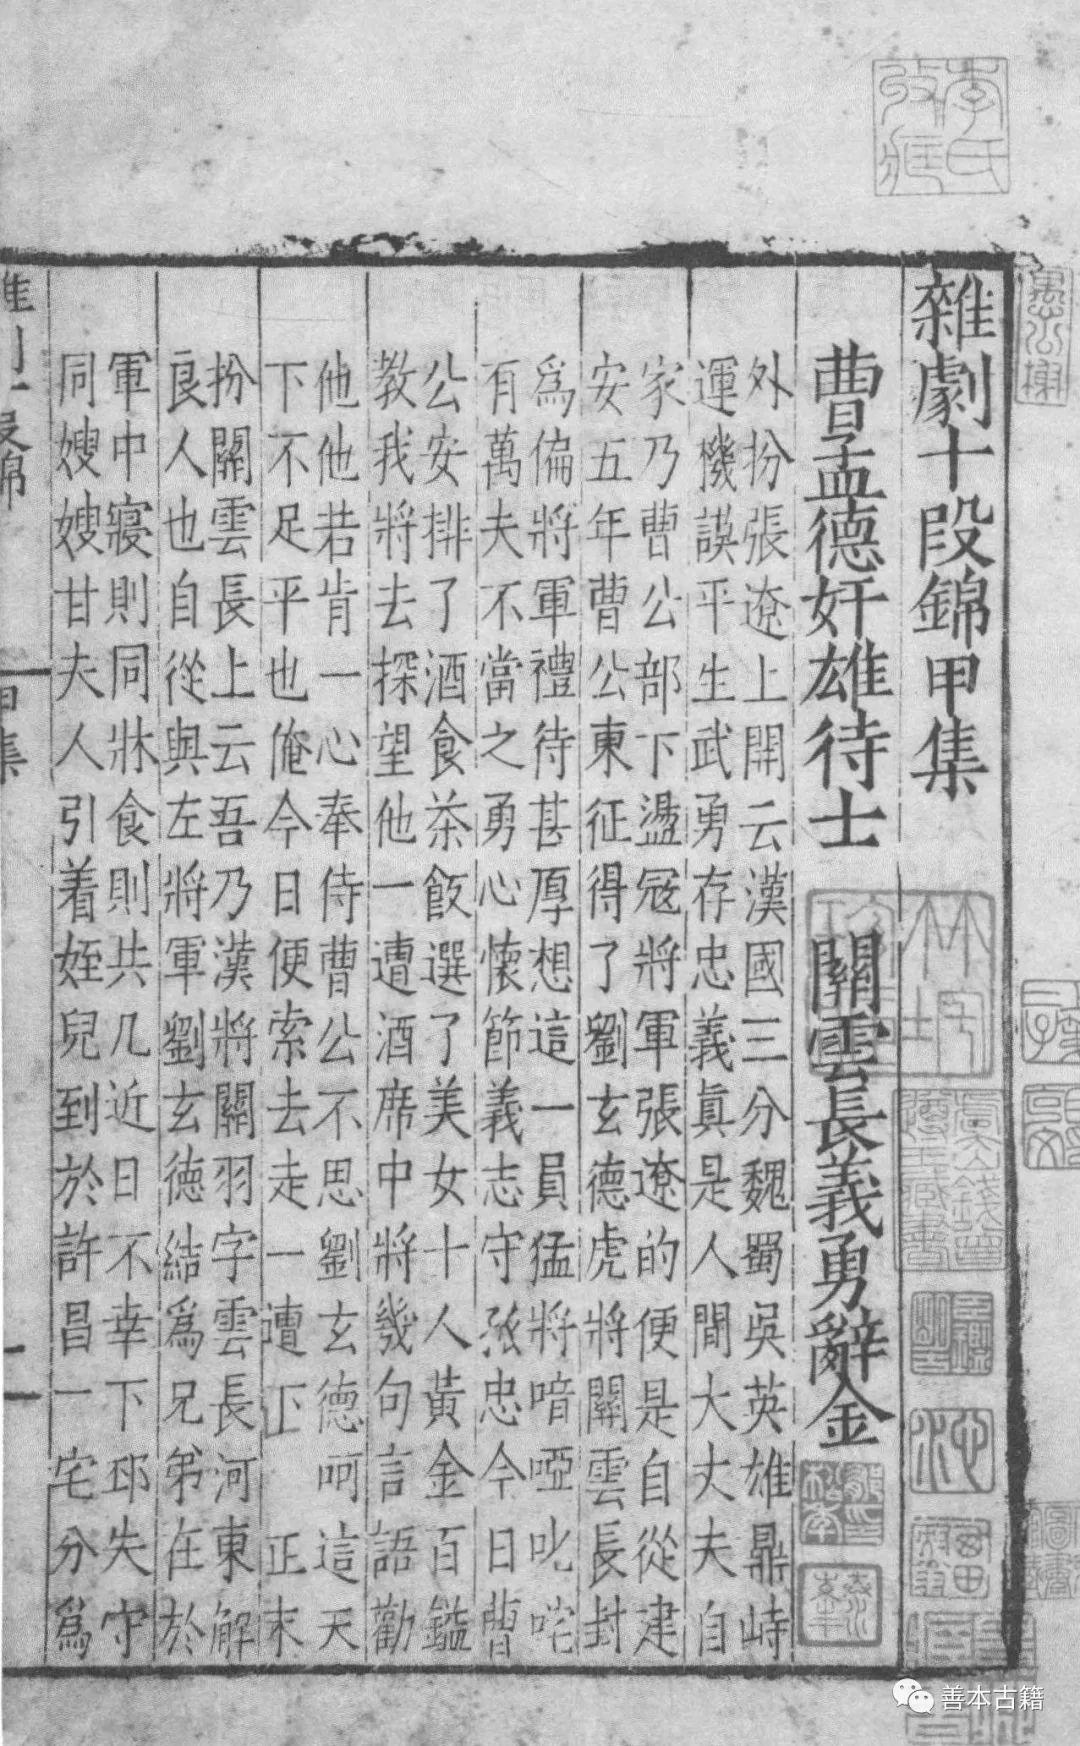 雜劇十段錦甲集
曹孟德奸雄待士　關雲長義勇辭金
外扮張遼上開云漢國三分魏蜀吳英雄鼎峙
運機謀平生武勇存忠義真是人間大丈夫自
家乃曹公部下盪寇將軍張遼的便是自從建
安五年曹公東征得了劉玄德虎將關雲長封
為偏將軍禮待甚厚想這一員猛將喑啞叱咤
有萬夫不當之勇心懷節義志守孤忠今日曹
公安排了酒食茶飯選了美女十人黃金百鎰
教我將去探望他一遭酒席中將幾句言語勸
他他若肯一心奉侍曹公不思劉玄德呵這天
下不足平也俺今日便索去走一遭下　正末
扮關雲長上云吾乃漢將關羽字雲長河東解
良人也自從與左將軍劉玄德結為兄弟在於
軍中寢則同牀食則共几近日不幸下邳失守
同嫂嫂甘夫人引着姪兒到於許昌一宅分為
善本古籍